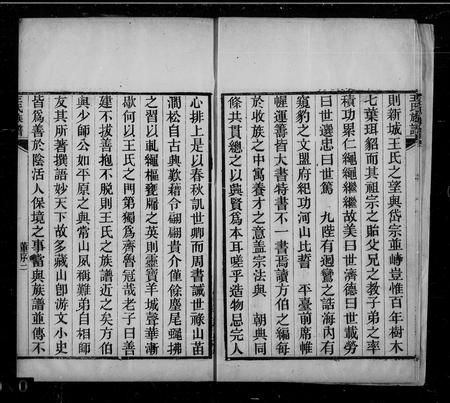 則新城王氏之望與岱宗並峙豈惟百年樹木
七葉珥貂而其祖宗之貽父兄之教子弟之率
積功累仁繩繩繼繼故美曰世濟德曰世載勞
曰世選忠曰世篤 九陛有迴鸞之誥海內有
窺豹之文盟府紀功河山比誓 平臺前席帷
幄運籌皆大書特書不一書焉讀方伯之編每
於收族之中寓養才之意蓋宗法與 朝典同
條共貫總之以與賢為本耳嗟乎造物忌完人
心排上是以春秋譏世卿而周書誡世祿山苗
澗松自古興歎藉令翩翩貴介僅餘塵尾蠅拂
之習以軋繩樞甕牖之英則靈寶羊城聲華漸
歇何以王氏之門第獨為齊魯冠哉老子曰善
建不拔善抱不脫則王氏之族譜近之矣方伯
與少師公如平原之與常山夙稱難弟自相師
友其所著撰語妙天下故多藏山卽游文小史
皆為善於陰活人保境之事當與族譜並傳不
王氏族譜
董序二